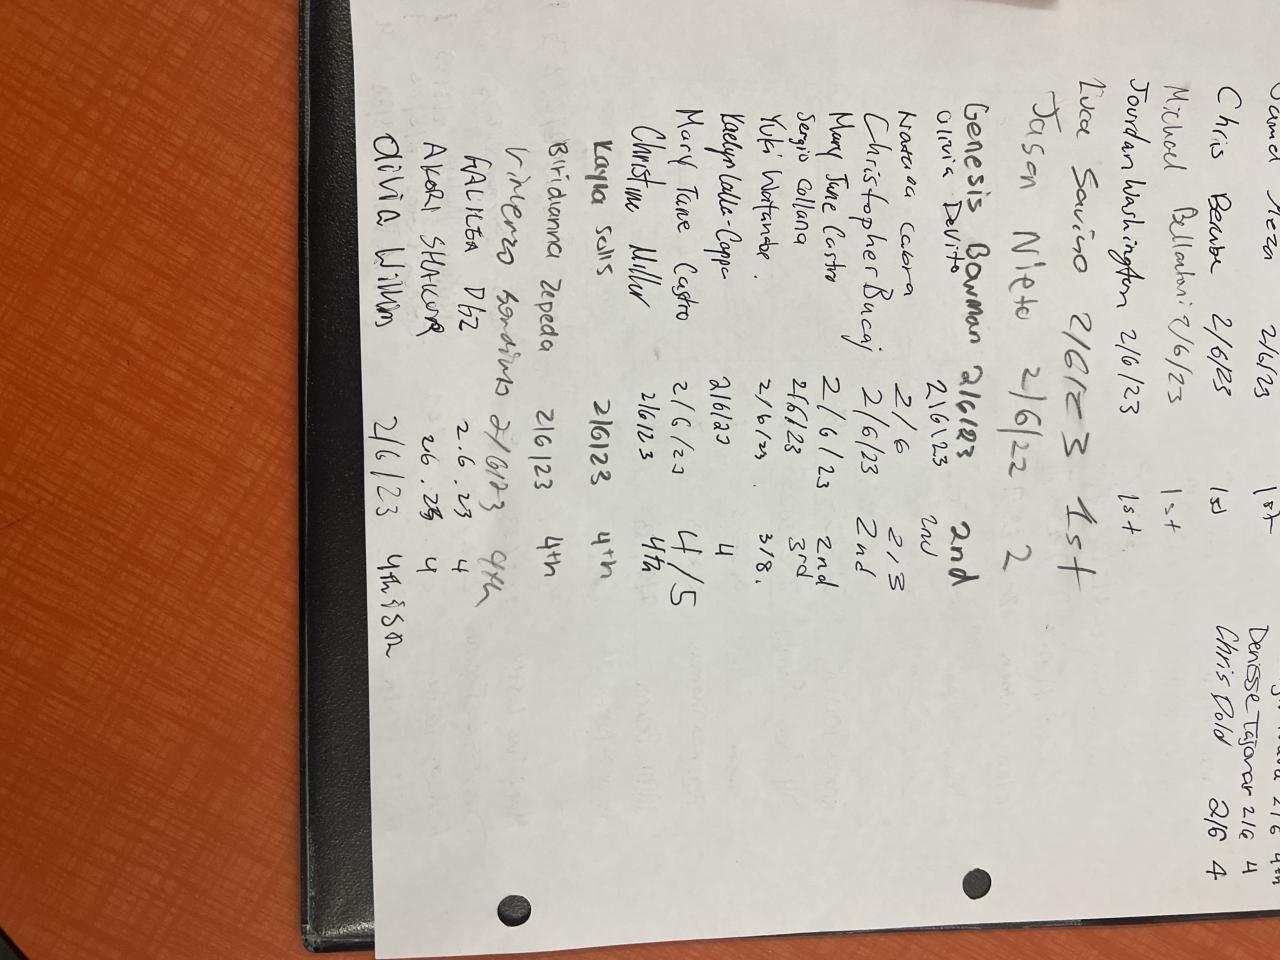 2/6/23 1st
Chris Berube 2/6/23 1st
Michael 2/6/23 1st
Jourdan Washington 2/6/23 1st
Luca Savino 2/6/23 1st
Jason Nieto 2/6/22 2
Genesis Bowman 2/6/23 2nd
Olivia Devito 2/6/23 2nd
Cabra 2/6 2/3
Christopher Bucaj 2/6/23 2nd
Mary Jane Castro 2/6/23 2nd
Sergio Collana 2/6/23 3rd
Yuki Watanabe. 2/6/23. 3/8.
Kaelyn Lalla-Coppa 2/6/23 4
Mary Jane Castro 2/6/23 4/5
Christine Miller 2/6/23 4th
Kayla Solis 2/6/23 4th
Biridianna Zepeda 2/6/23 4th
Vincenzo 2/6/23 4th
GALILEA 2.6.23 4
AKORI SHAKUR 26.23 4
Olivia 2/6/23 4th
2/6 4th
Denisse Tajonar 2/6 4
Chris Dold 2/6 4